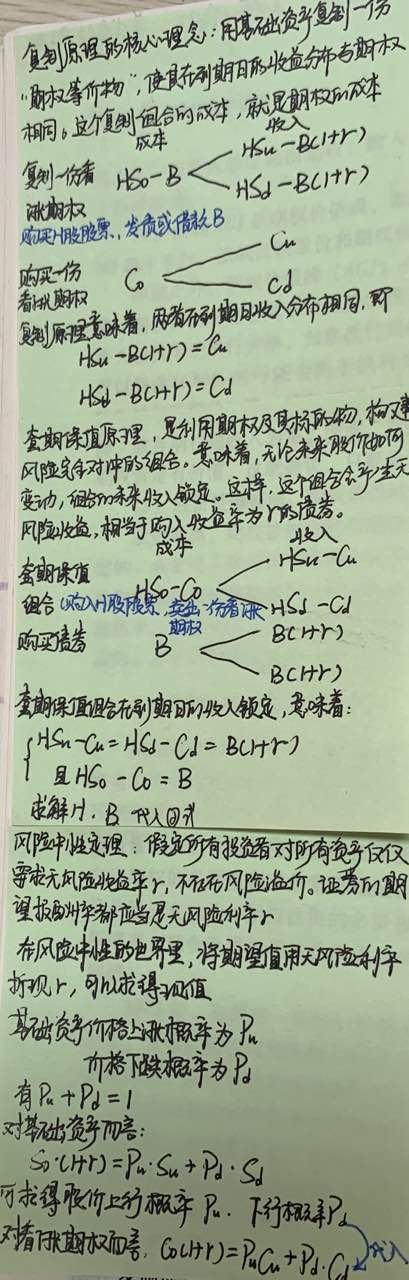 复制原理的核心理念：用基础资产复制一份
“期权等价物”，使其在到期日的收益分布与期权
相同。这个复制组合的成本，就是期权的成本
成本 收入
复制一份看涨期权 HS₀-B HSu-B(1+r)
HSd-B(1+r)
购买H股股票，发债或借款B
购买一份看涨期权 C₀ Cu
Cd
复制原理意味着，两者在到期日收入分布相同，即
HSu-B(1+r)=Cu
HSd-B(1+r)=Cd
套期保值原理，是利用期权及其标的物，构建
风险完全对冲的组合。意味着，无论未来股价如何
变动，组合的未来收入锁定。这样，这个组合会产生无
风险收益，相当于购入收益率为r的债券。
成本 收入
套期保值 HS₀-C₀ HSu-Cu
组合（购入H股股票，卖出一份看涨期权 HSd-Cd
购买债券 B B(1+r)
B(1+r)
套期保值组合在到期日的收入锁定，意味着：
HSu-Cu=HSd-Cd=B(1+r)
且HS₀-C₀=B
求解H、B 代入回式
风险中性定理：假定所有投资者对所有资产仅仅
要求无风险收益率r，不存在风险溢价。证券的期
望报酬率都应当是无风险利率r
在风险中性的世界里，将期望值用无风险利率
折现r，可以求得现值
基础资产价格上涨概率为Pu
价格下跌概率为Pd
有Pu+Pd=1
对基础资产而言：
S₀·(1+r)=Pu·Su+Pd·Sd
可求得股价上行概率Pu、下行概率Pd
对看涨期权而言，C₀(1+r)=PuCu+Pd·Cd 代入